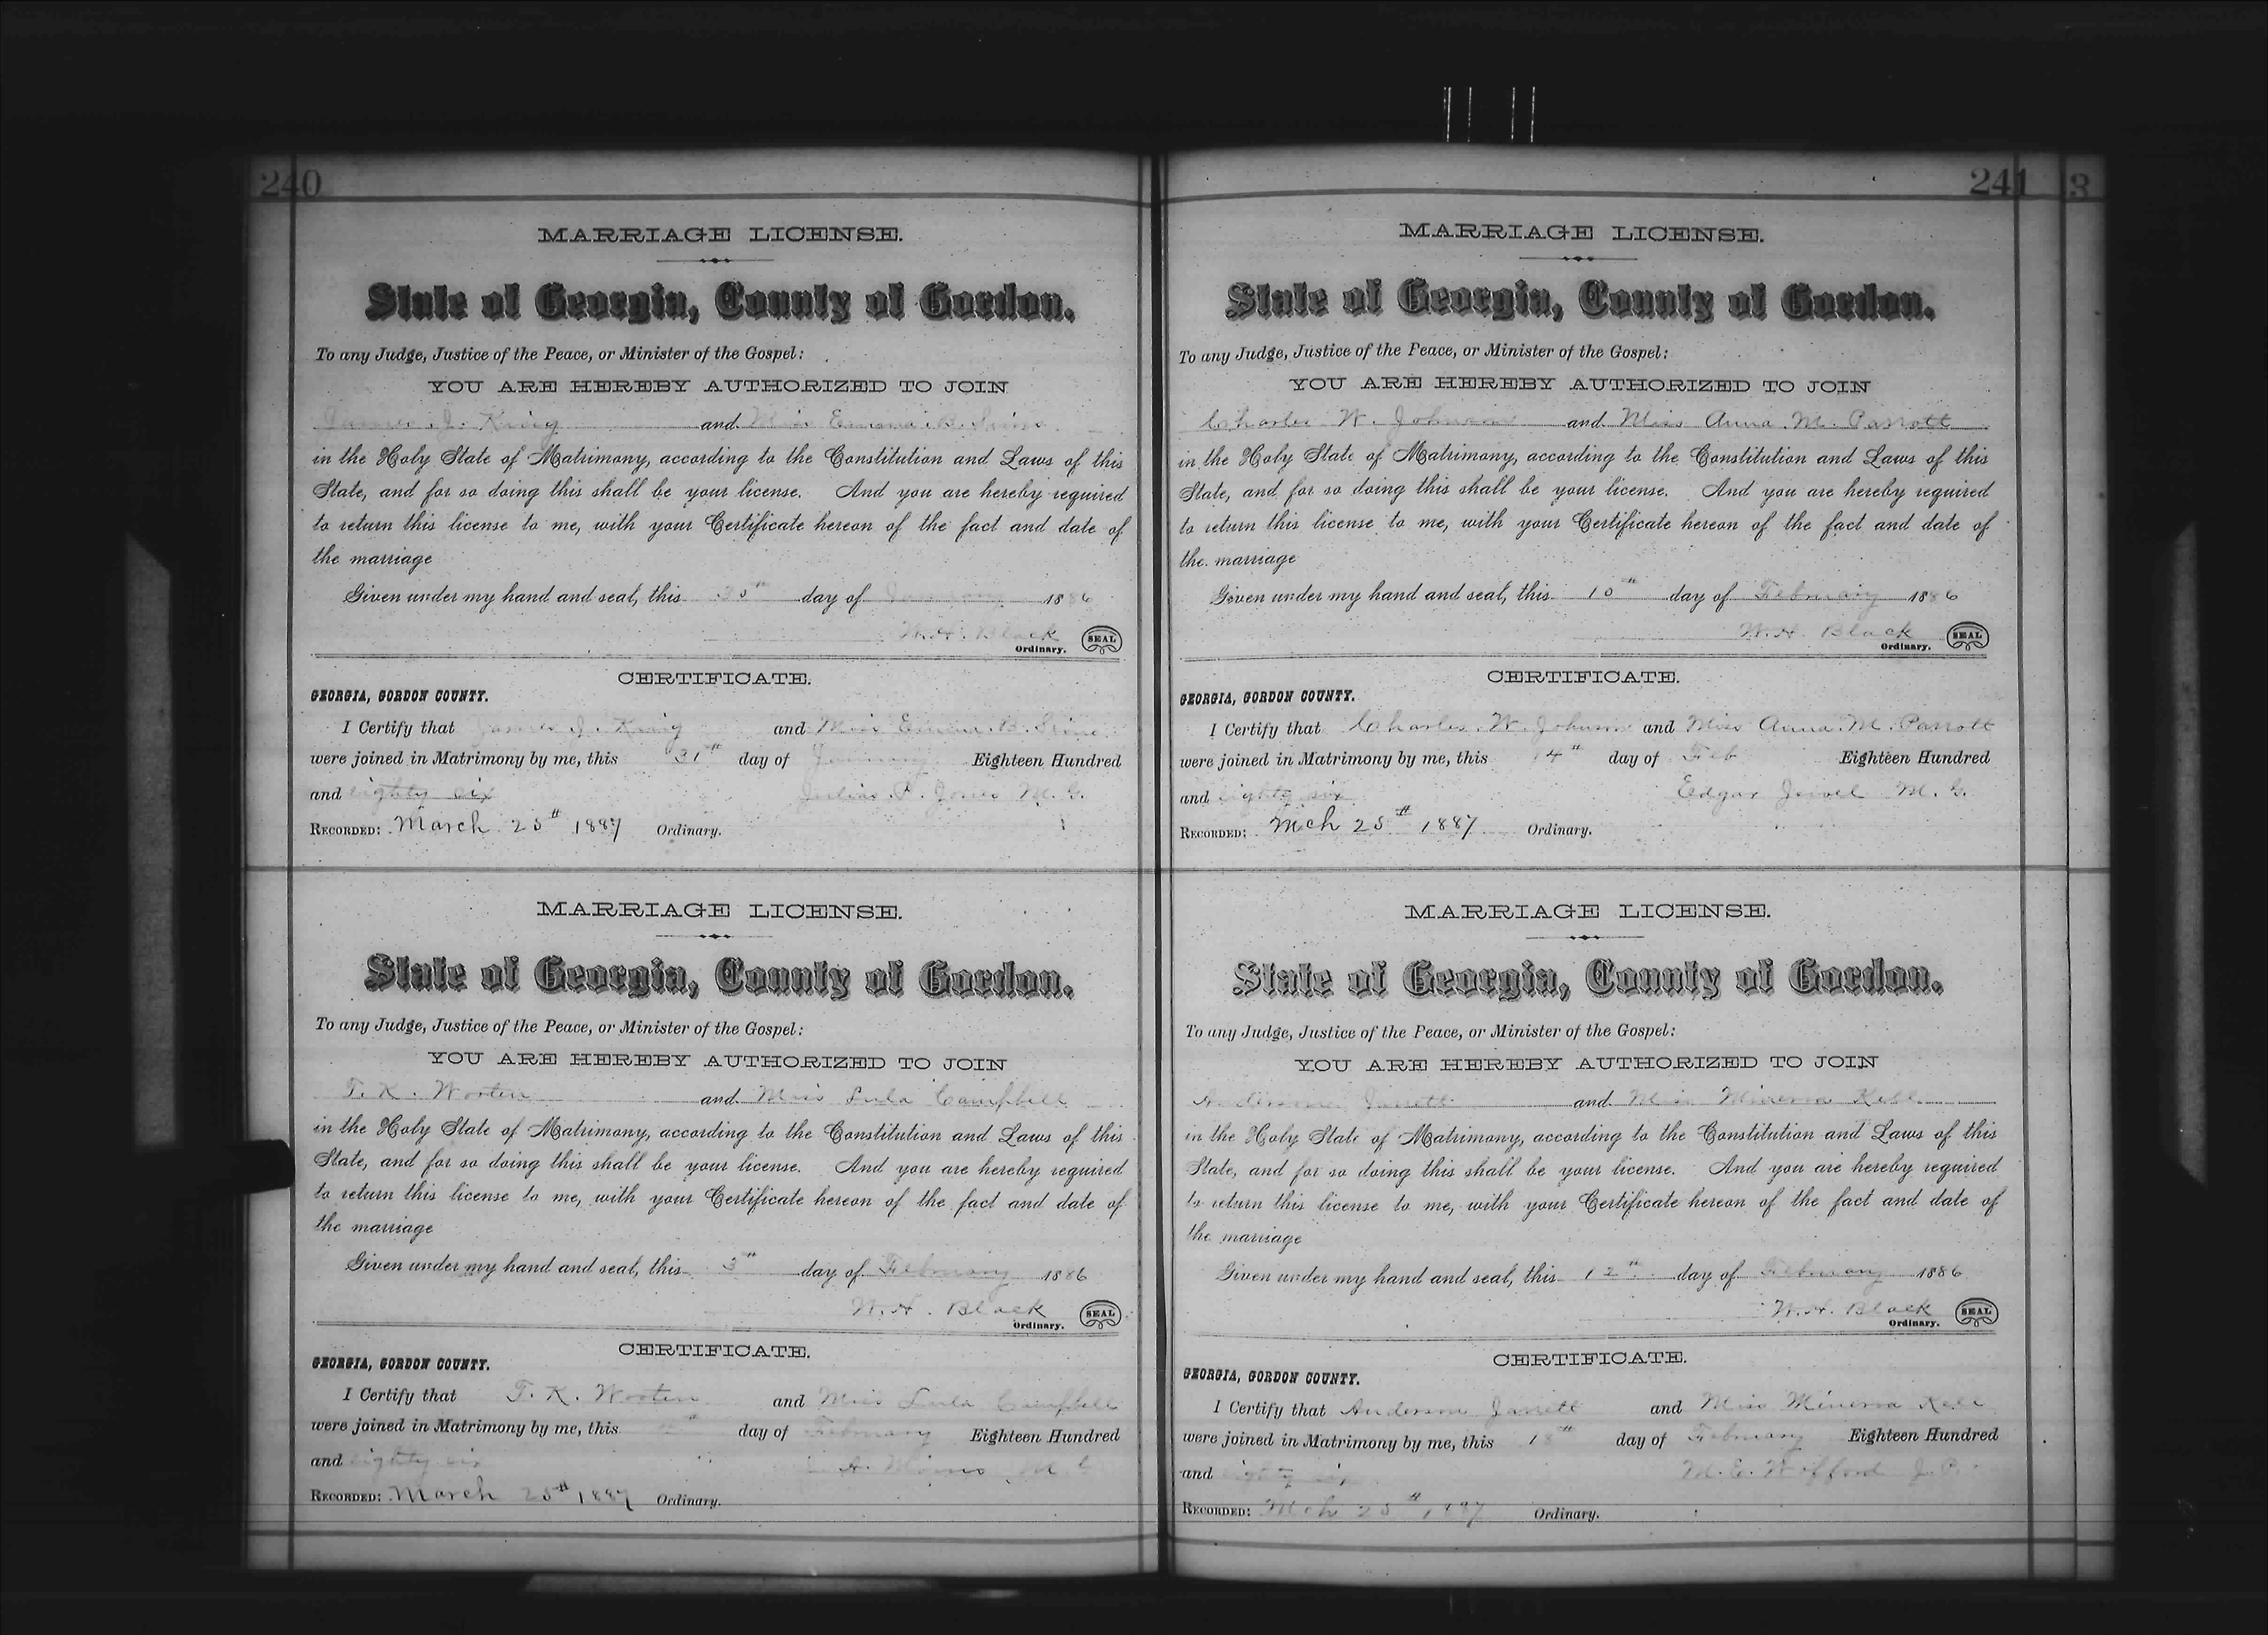 240
MARRIAGE LICENSE.
State of Georgia, County of Gordon.
To any Judge, Justice of the Peace, or Minister of the Gospel:
YOU ARE HEREBY AUTHORIZED TO JOIN
James J. King and Miss Emma B.
in the Holy State of Matrimony, according to the Constitution and Laws of this
State, and for so doing this shall be your license. And you are hereby required
to return this license to me, with your Certificate hereon of the fact and date of
the marriage
Given under my hand and seal, this 30th day of January 1886
W. H. Black SEAL
Ordinary.
CERTIFICATE.
GEORGIA, GORDON COUNTY.
I Certify that James J. King and Miss Emma B.
were joined in Matrimony by me, this 31st day of January Eighteen Hundred
and eighty six Jones M. G.
RECORDED: March 25th 1887 Ordinary.
MARRIAGE LICENSE.
State of Georgia, County of Gordon.
To any Judge, Justice of the Peace, or Minister of the Gospel:
YOU ARE HEREBY AUTHORIZED TO JOIN
T. K. Wooten and Miss Lula Campbell
in the Holy State of Matrimony, according to the Constitution and Laws of this
State, and for so doing this shall be your license. And you are hereby required
to return this license to me, with your Certificate hereon of the fact and date of
the marriage
Given under my hand and seal, this 3rd day of February 1886
W. H. Black SEAL
Ordinary.
CERTIFICATE.
GEORGIA, GORDON COUNTY.
I Certify that T. K. Wooten and Miss Lula Campbell
were joined in Matrimony by me, this day of February Eighteen Hundred
and eighty six
RECORDED: March 25th 1887 Ordinary.
241 3
MARRIAGE LICENSE.
State of Georgia, County of Gordon.
To any Judge, Justice of the Peace, or Minister of the Gospel:
YOU ARE HEREBY AUTHORIZED TO JOIN
Charles W. Johnson and Miss Anna M. Parrott
in the Holy State of Matrimony, according to the Constitution and Laws of this
State, and for so doing this shall be your license. And you are hereby required
to return this license to me, with your Certificate hereon of the fact and date of
the marriage
Given under my hand and seal, this 10th day of February 1886
W. H. Black SEAL
Ordinary.
CERTIFICATE.
GEORGIA, GORDON COUNTY.
I Certify that Charles W. Johnson and Miss Anna M. Parrott
were joined in Matrimony by me, this 14th day of Feb Eighteen Hundred
and eighty six Edgar Jewel M. G.
RECORDED: Mch 25th 1887 Ordinary.
MARRIAGE LICENSE.
State of Georgia, County of Gordon.
To any Judge, Justice of the Peace, or Minister of the Gospel:
YOU ARE HEREBY AUTHORIZED TO JOIN
Anderson Jarrett and Miss Minerva Kell
in the Holy State of Matrimony, according to the Constitution and Laws of this
State, and for so doing this shall be your license. And you are hereby required
to return this license to me, with your Certificate hereon of the fact and date of
the marriage
Given under my hand and seal, this 12th day of February 1886
W. H. Black SEAL
Ordinary.
CERTIFICATE.
GEORGIA, GORDON COUNTY.
I Certify that Anderson Jarrett and Miss Minerva Kell
were joined in Matrimony by me, this 18th day of February Eighteen Hundred
and eighty six M. E. Wofford J. P.
RECORDED: Mch 25th 1887 Ordinary.